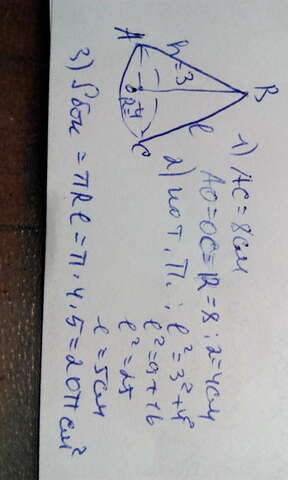 A
h=3
B
O
R=4
l
C
1) AC = 8 см
AO=OC=R=8:2=4см
2) по т. П.: l²=3²+4²
l²=9+16
l²=25
l=5см
3) Sбок = πRl = π·4·5=20π см²